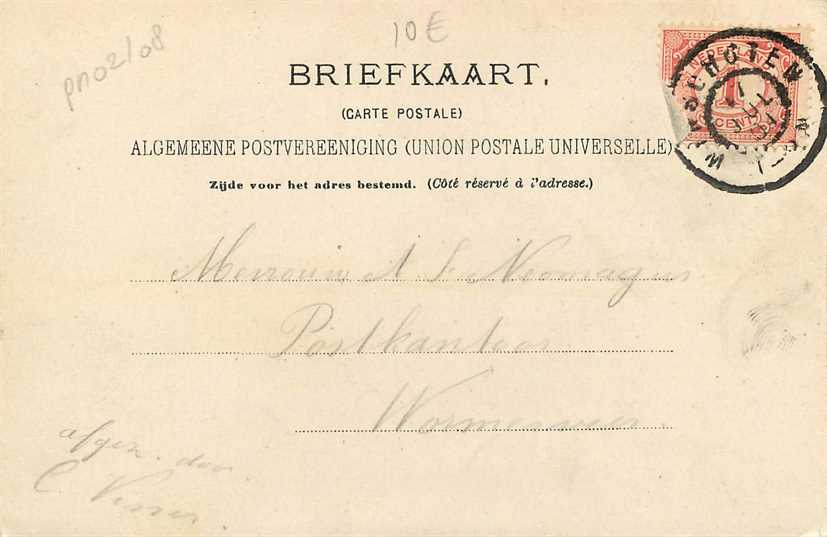 pno2/08
10€
BRIEFKAART.
(CARTE POSTALE)
ALGEMEENE POSTVEREENIGING (UNION POSTALE UNIVERSELLE)
Zijde voor het adres bestemd. (Côté réservé à l'adresse.)
NEDERLAND
1
CENT
Mevrouw A S. Neomagus
Postkantoor
Wormerveer.
afgez. door
C Visser